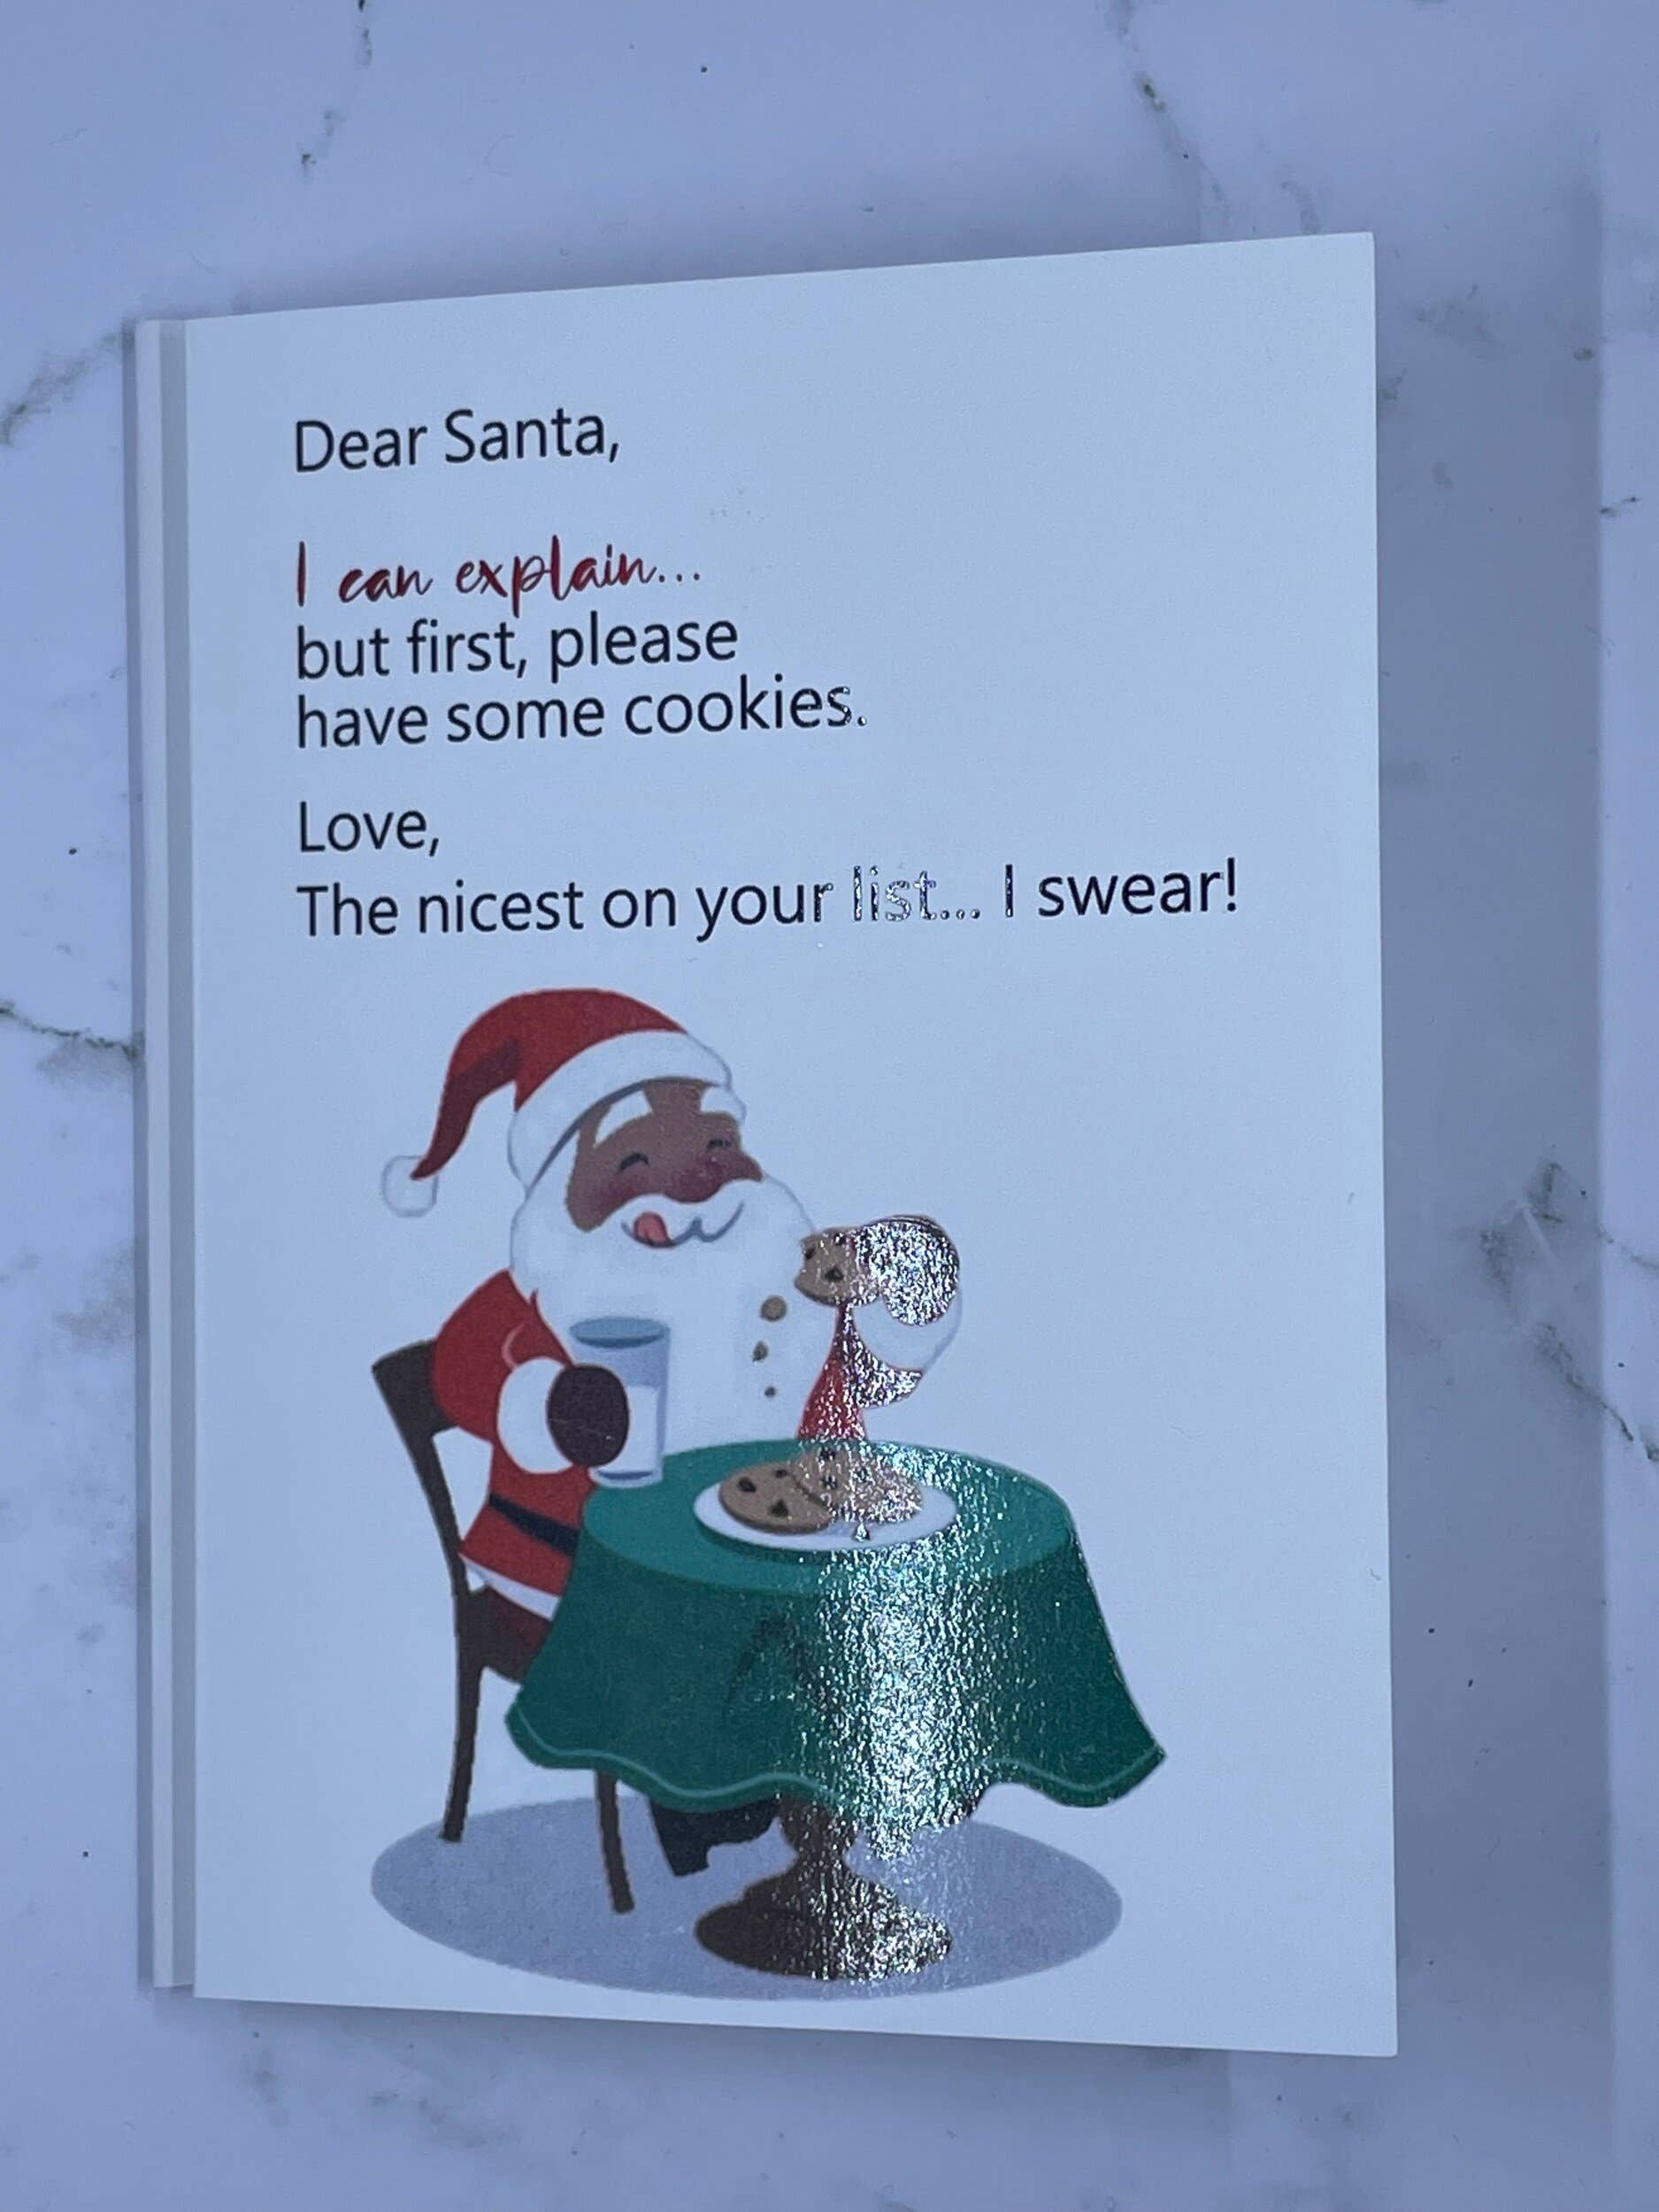 Dear Santa,
I can explain...
but first, please
have some cookies.
Love,
The nicest on your list... I swear!